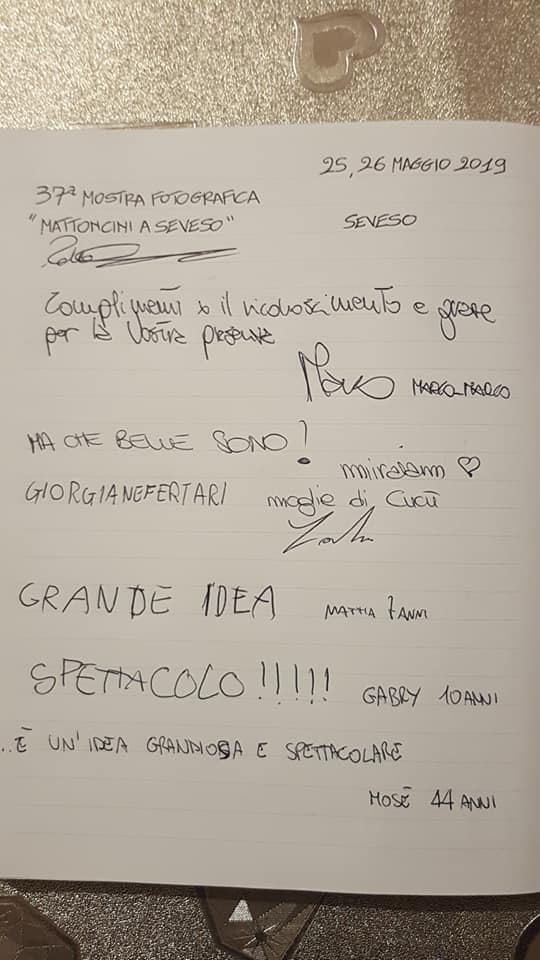 25, 26 MAGGIO 2019
37ª MOSTRA FOTOGRAFICA
"MATTONCINI A SEVESO"
SEVESO
Complimenti x il riconoscimento e grazie
per la Vostra presenza
Marco MARCO_MARCO
MA CHE BELLE SONO!
miriam ♡
GIORGIANEFERTARI
moglie di Cucù
GRANDE IDEA MATTIA 7 ANNI
SPETTACOLO!!!!!! GABRY 10 ANNI
..È UN'IDEA GRANDIOSA E SPETTACOLARE
MOSÈ 44 ANNI